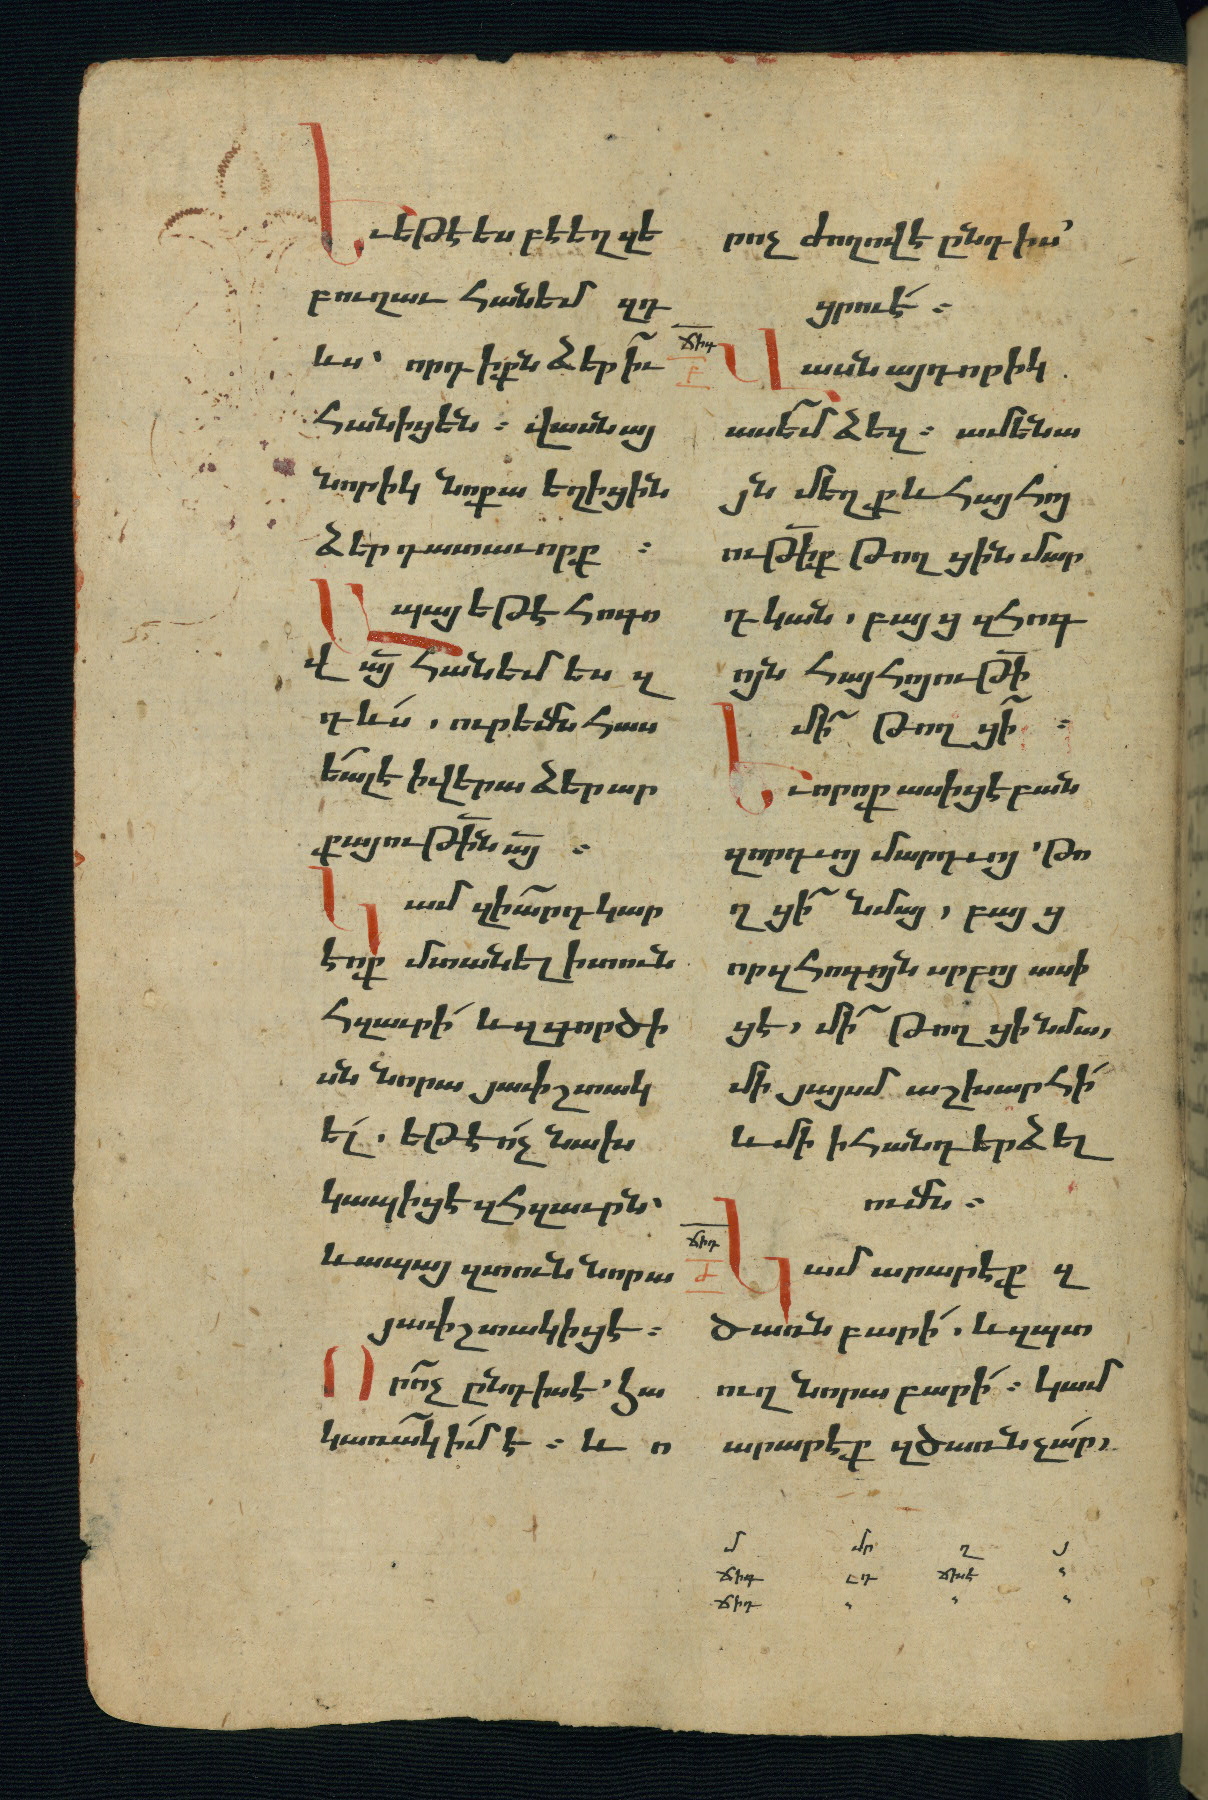 Եւ եթէ ես բէեղզե
բուղաւ հանեմ զդ
ևս՝ որդիքն ձեր իւ
հանիցեն։ վասն այ
նորիկ նոքա եղիցին
ձեր դատաւորք։
Ապա եթէ հոգո
վ այ հանեմ ես զ
դևս, ուրեմն հաս
եալ է ի վերա ձեր ար
քայութին այ։
Կամ զիարդ կար
է ոք մտանել ի տուն
հզաւրի և զգործի
սն նորա յափշտակ
ել, եթէ ոչ նախ
կապիցէ զհզաւրն՝
և ապայ զտուն նորա
յափշտակիցէ։
Որ ոչ ընդ իս է՝ հա
կառակ իմ է։ և ո
ր ոչ ժողովէ ընդ իս՝
ցրուէ։
ճիգ
բ
Վասն այդորիկ
ասեմ ձեզ։ ամենա
յն մեղք և հայհոյ
ութիք թողցին մար
դկան, բայց զհոգ
ոյն հայհոյութի
մի թողցի։
Եւ որ ոք ասիցէ բան
զորդւոյ մարդւոյ՝ թո
ղցի նմայ, բայց
որ զհոգոյն սրբոյ ասի
ցէ, մի թողցի նմա,
մի յայսմ աշխարհի
և մի ի հանդերձել
ումն։
ճիդ
ժ
Կամ արարէք զ
ծառն բարի, և զպտ
ուղ նորա բարի։ կամ
արարէք զծառն չար,
մ մր ղ յ
ճիգ ճիէ
ճիդ